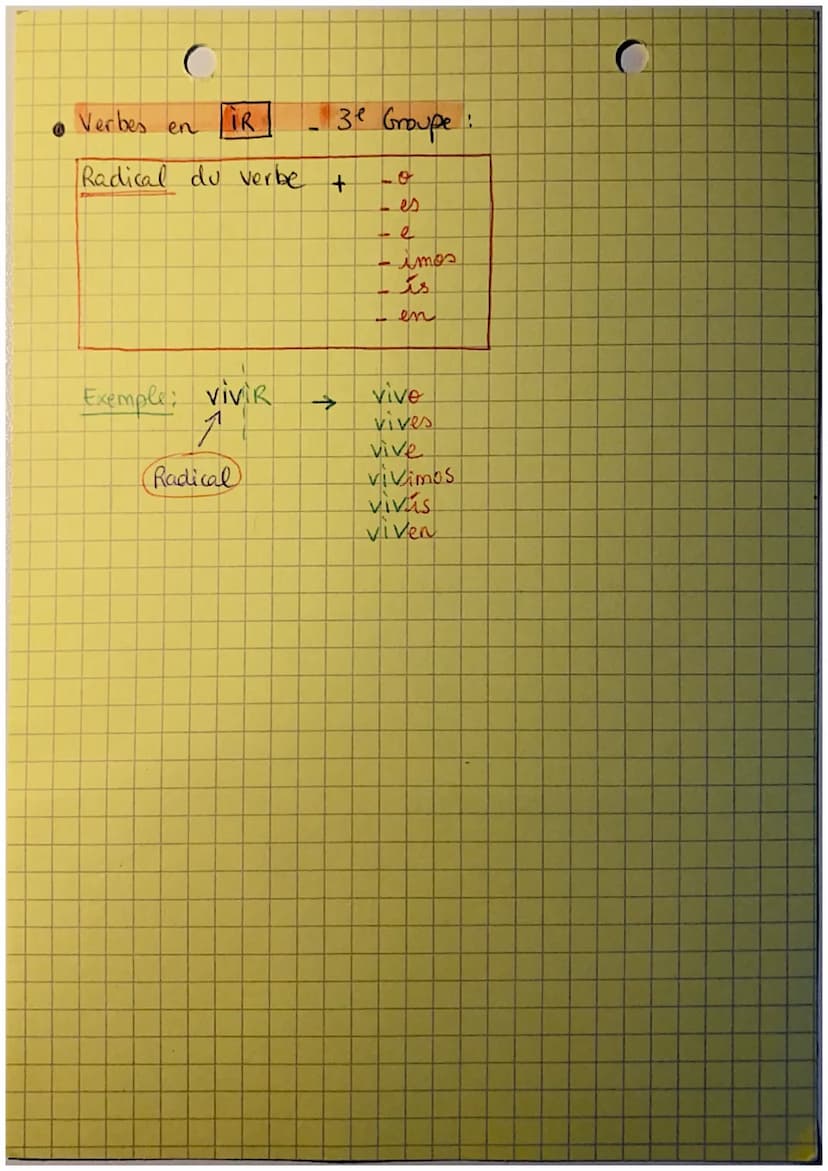 • Verbes en IR - 3e Groupe :
Radical du verbe + - o
- es
- e
- imos
- ís
- en
Exemple : vivIR → vivo
vives
vive
Radical vivimos
vivís
viven